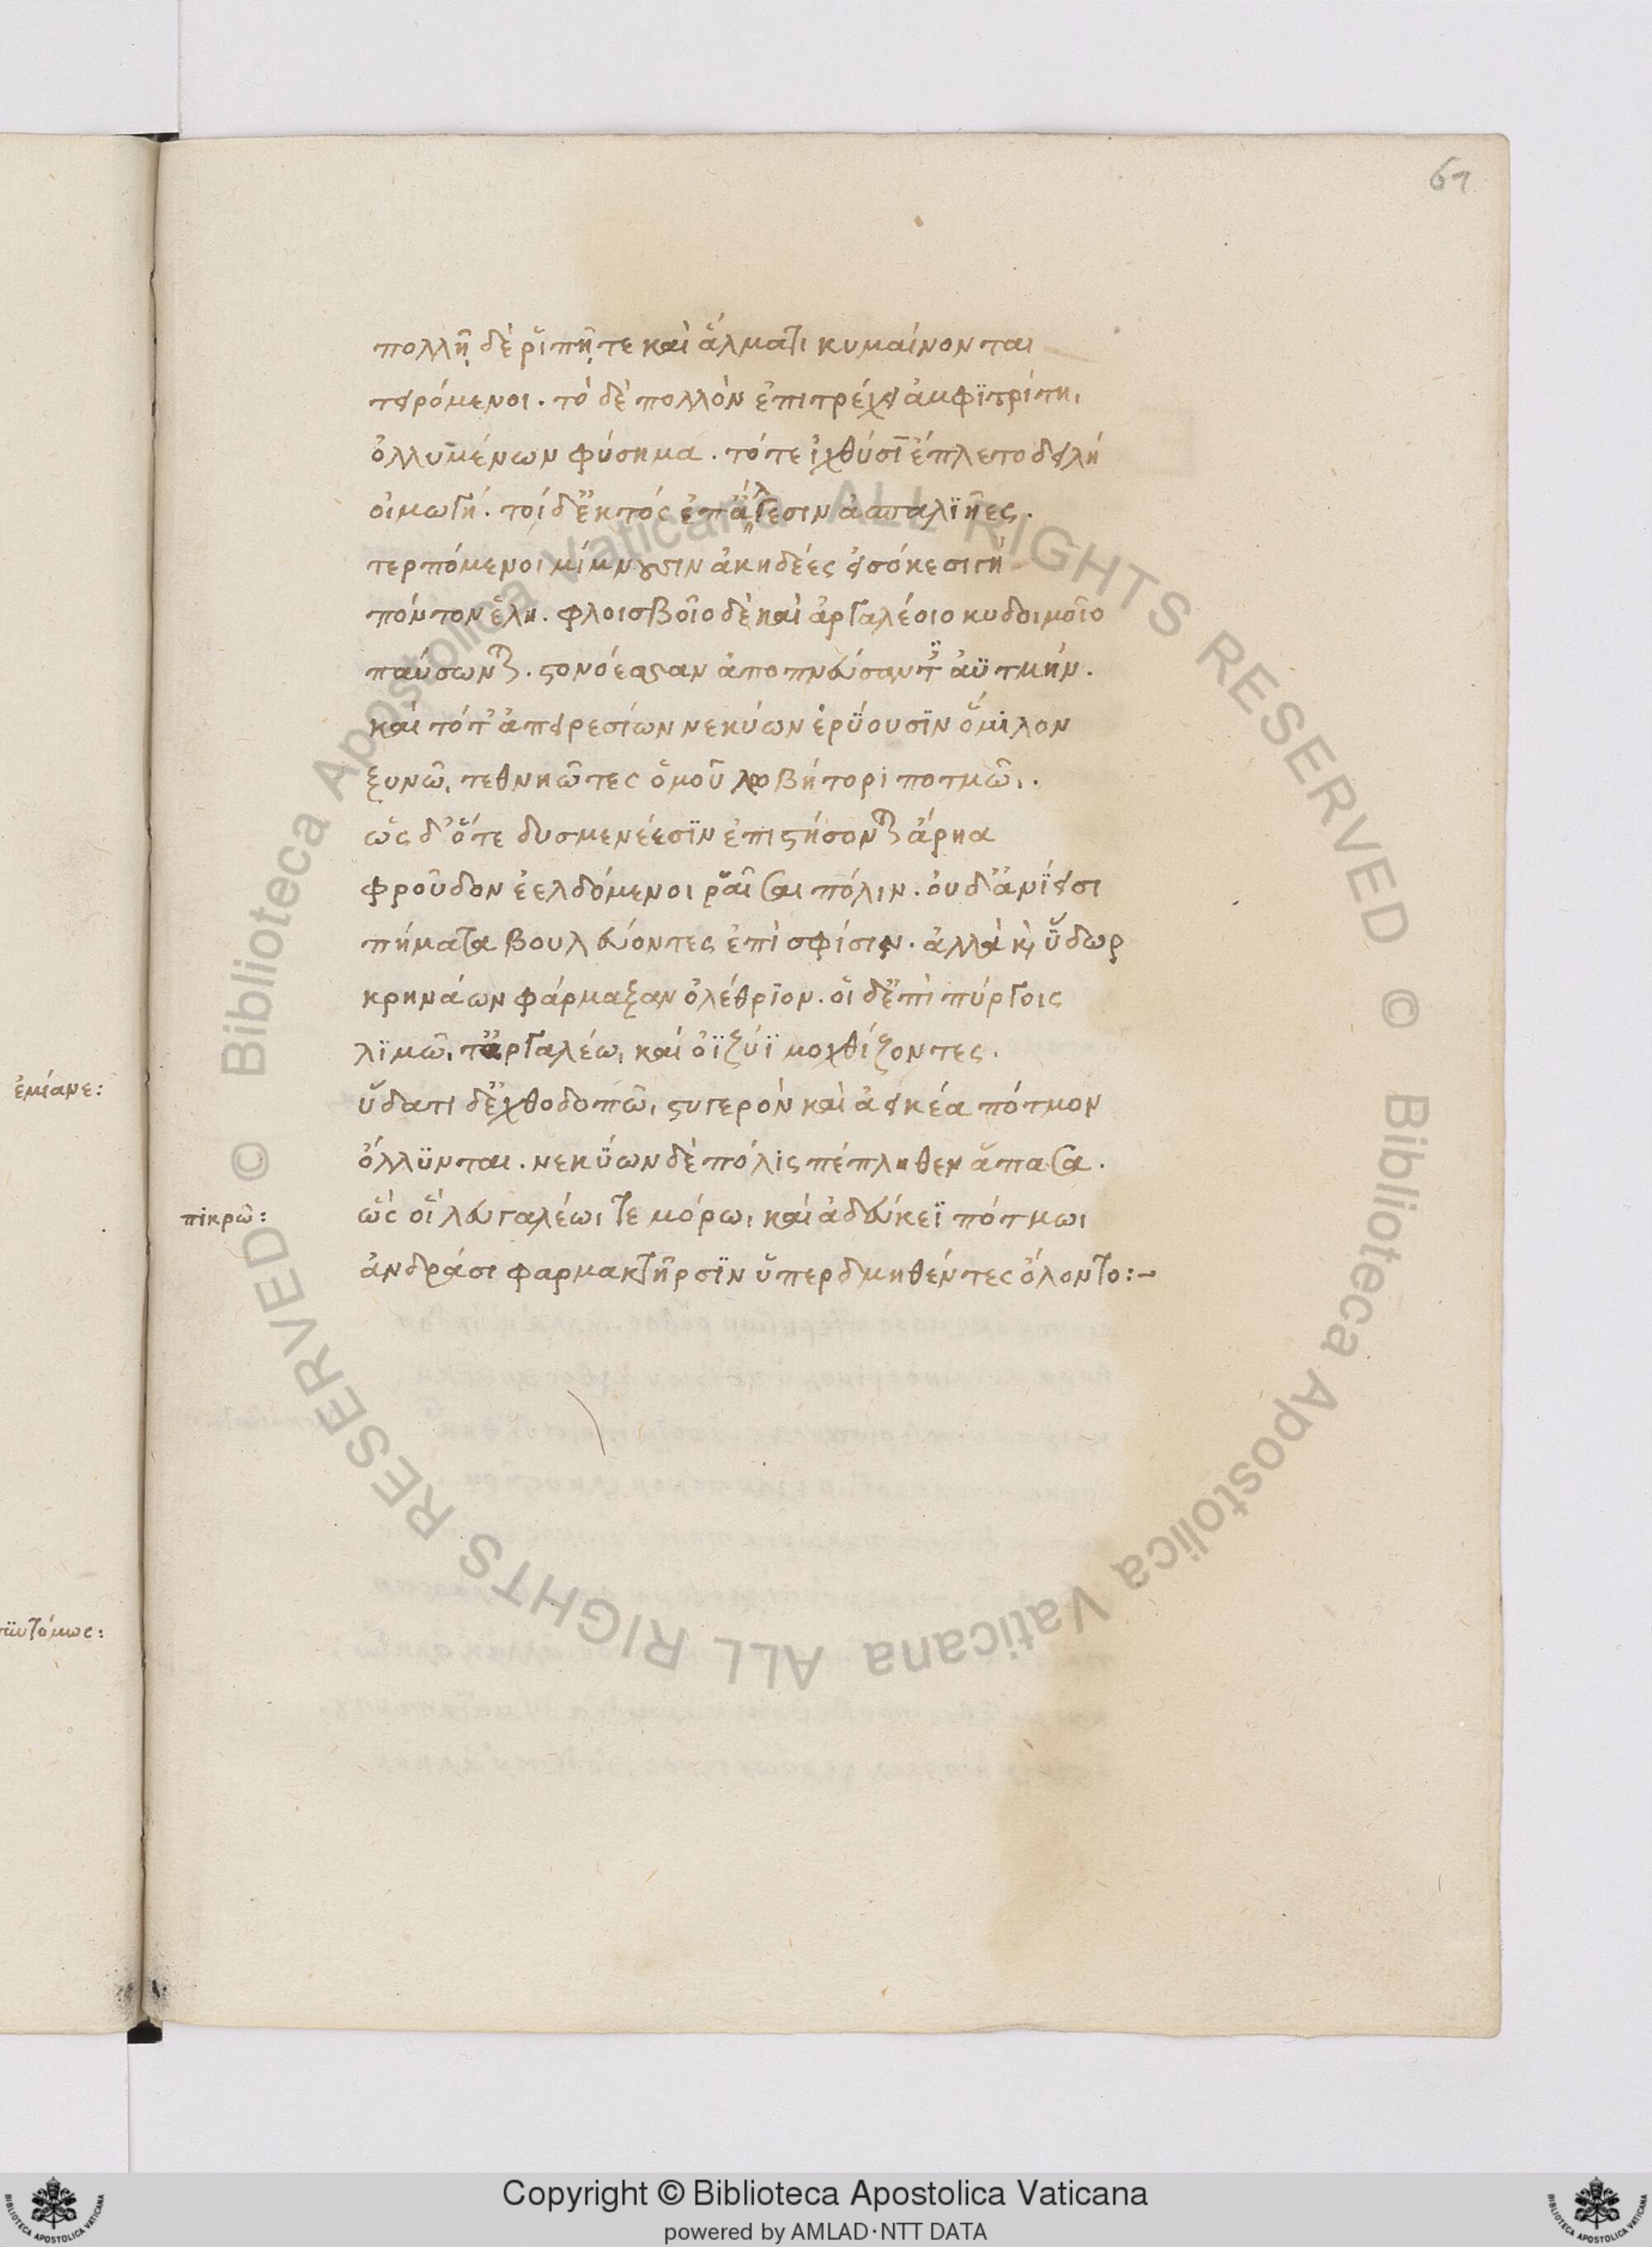 61
πολλῆι δὲ ῥιπῆι τε καὶ ἅλματι κυμαίνονται
τειρόμενοι. τὸ δὲ πολλὸν ἐπιτρέχει ἀμφϊτρίτηι
ὀλλυμένων φύσημα. τότε ἰχθύσϊ ἔπλετο δειλή
οἰμωγή. τοὶ δ' ἐκτός ἐπ' ἄλγεσιν ἀσπαλϊῆες.
τερπόμενοι μίμνουσιν ἀκηδέες εἰσόκε σιγή
πόντον ἕλη. φλοισβοῖο δὲ καὶ ἀργαλέοιο κυδοιμοῖο
παύσωνται. στονόεσσαν ἀποπνεύσαντ' ἀϋτμήν.
καὶ τότ' ἀπειρεσίων νεκύων ἐρΰουσϊν ὅμιλον
ξυνῶι τεθνηῶτες ὁμοῦ λωβήτορι ποτμῶι.
ὡς δ' ὅτε δυσμενέεσϊν ἐπιστήσονται ἄρηα
φροῦδον ἐελδόμενοι ῥαῖσαι πόλιν. οὐδ' ἀνϊεῖσι
πήματα βουλεύοντες ἐπὶ σφίσιν. ἀλλὰ καὶ ὕδωρ
κρηνάων φάρμαξαν ὀλέθρϊον. οἱ δ' ἐπὶ πύργοις
λϊμῶι τ' ἀργαλέωι καὶ ὀϊζύϊ μοχθίζοντες.
ὕδατι δ' ἐχθοδοπῶι στυγερὸν καὶ ἀεικέα πότμον
ὄλλϋνται. νεκΰων δὲ πόλις πέπληθεν ἅπασα.
πικρῶ:
ὣς οἳ λευγαλέωι τε μόρωι καὶ ἀδευκέϊ πότμωι
ἀνδράσι φαρμακτῆρσϊν ὕπερδμηθέντες ὄλοντο:-
ἐμίανε:
© Biblioteca Apostolica Vaticana ALL RIGHTS RESERVED © Biblioteca Apostolica Vaticana ALL RIGHTS RESERVED
Copyright © Biblioteca Apostolica Vaticana
powered by AMLAD·NTT DATA